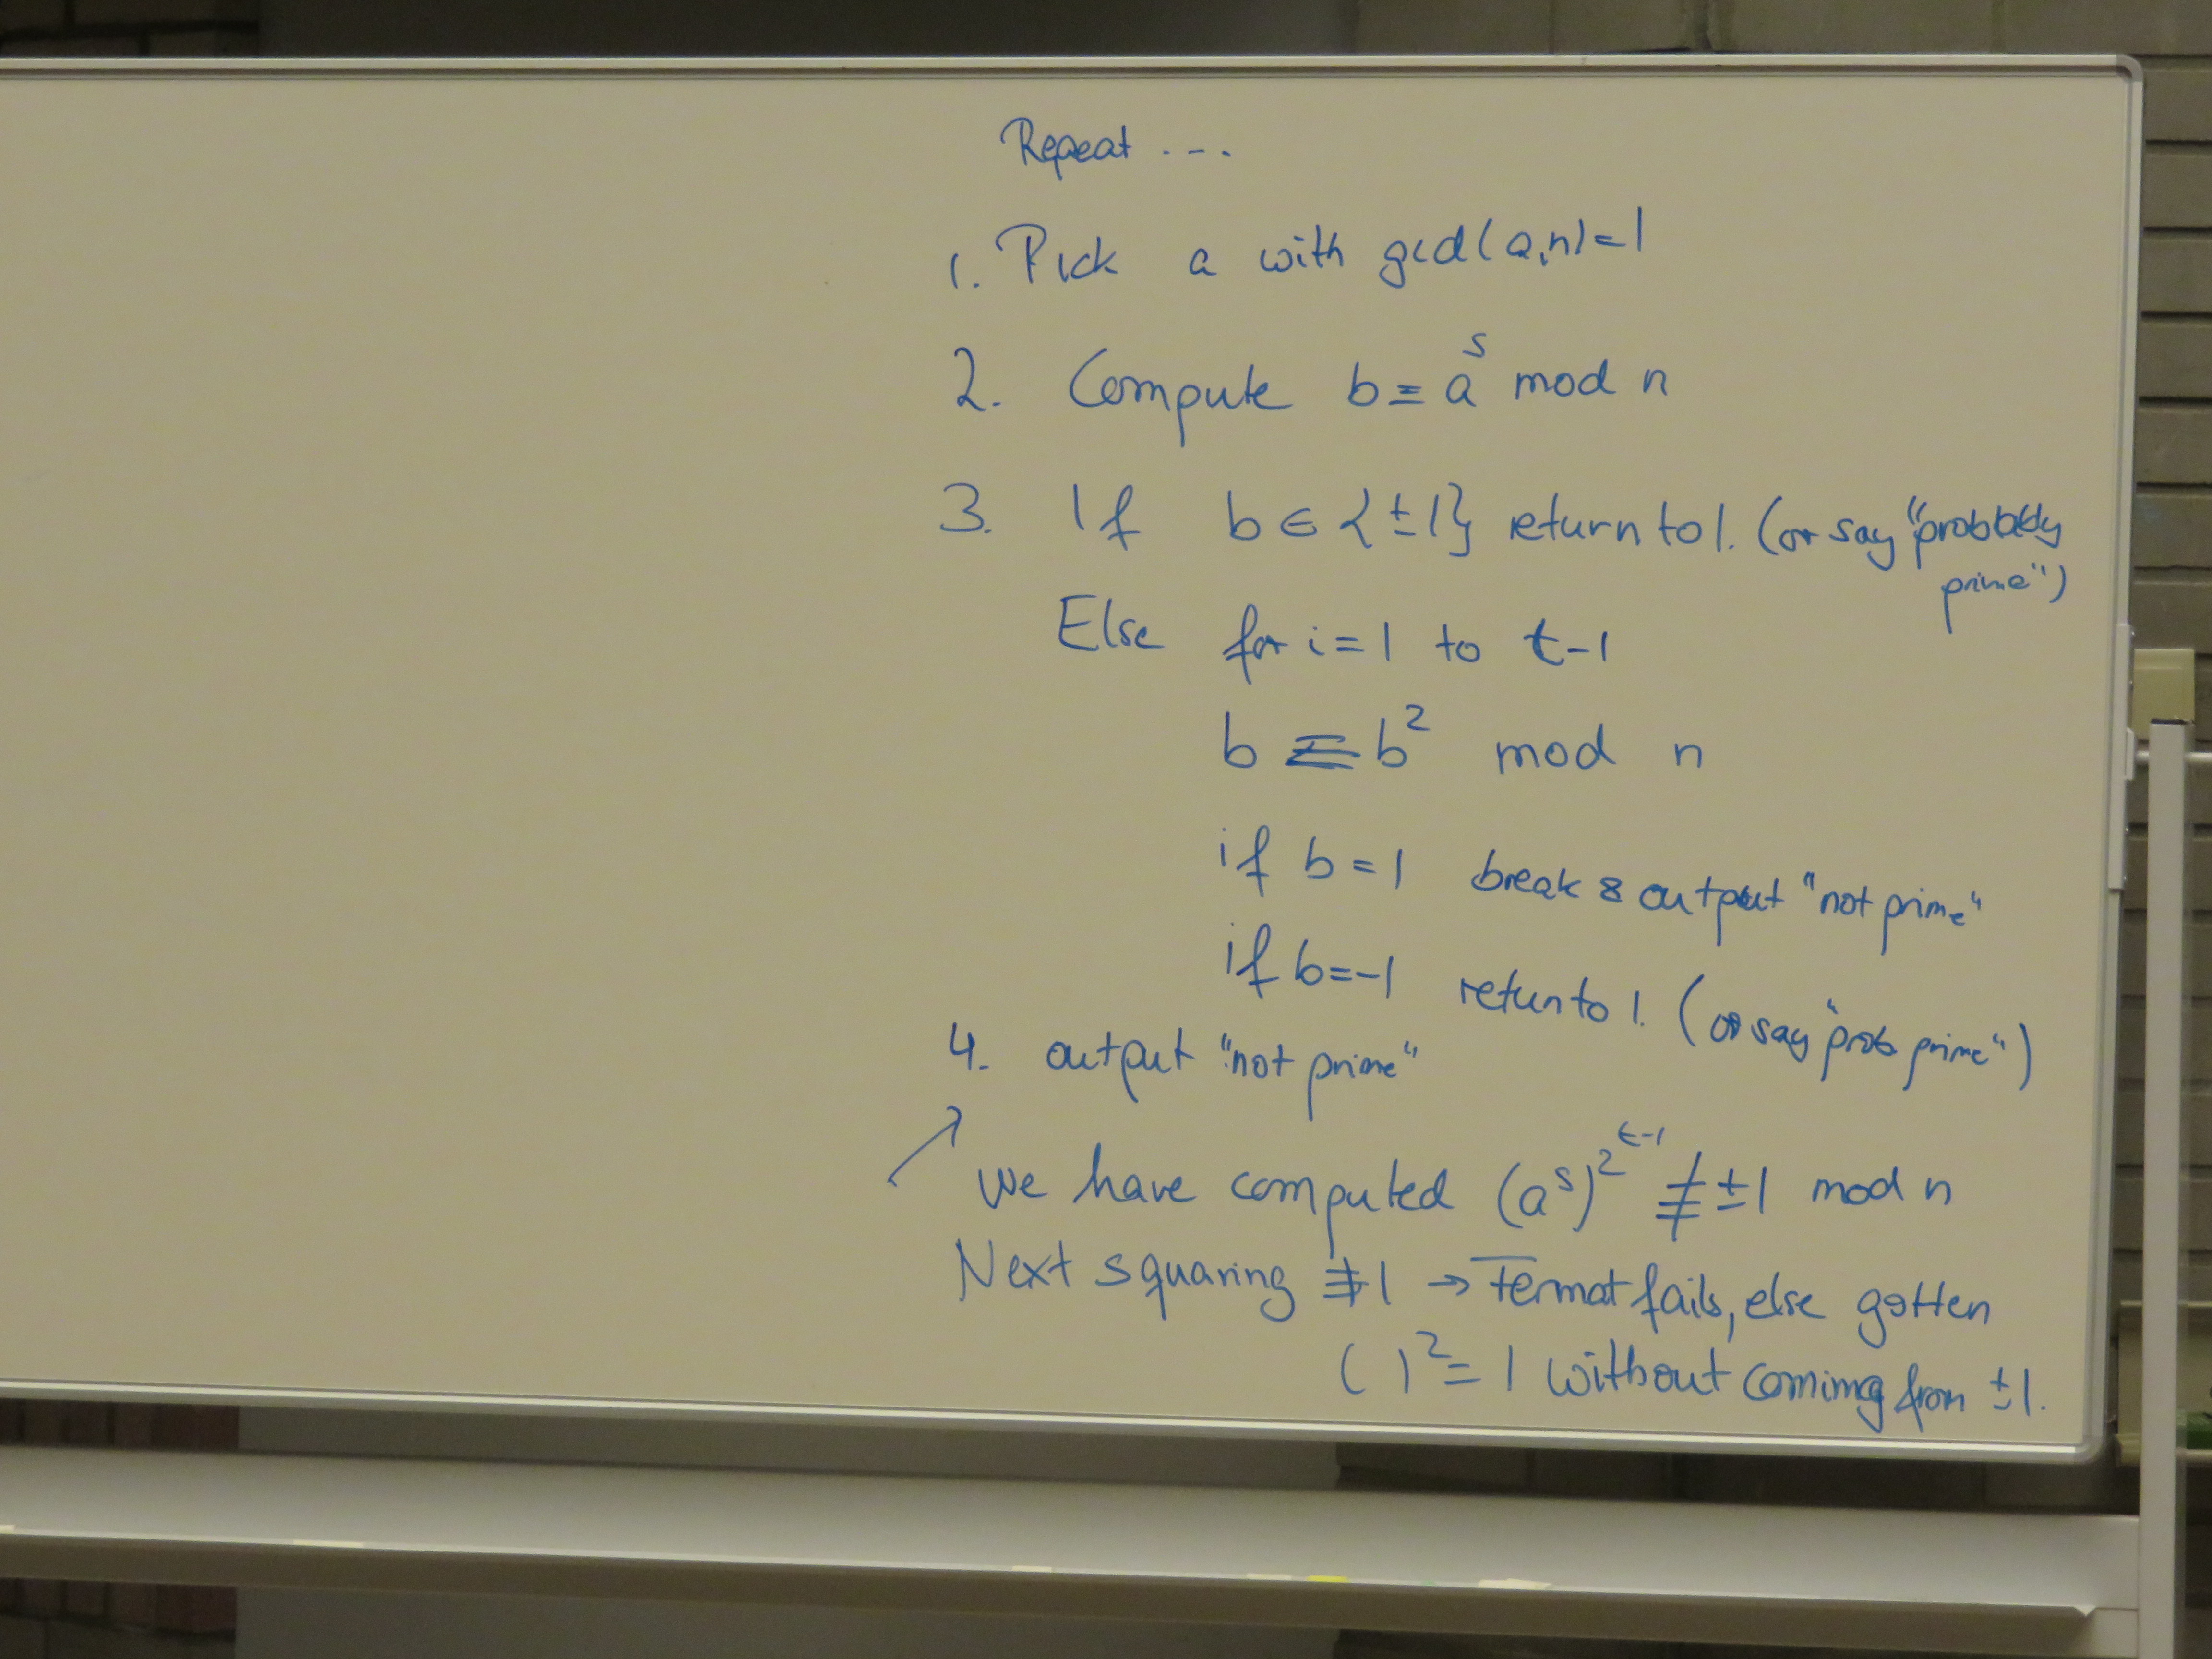 Repeat ...
1. Pick a with gcd(a,n)=1
2. Compute b ≡ a^s mod n
3. If b ∈ {±1} return to 1. (or say "probably
prime")
Else for i=1 to t-1
b ≡ b^2 mod n
if b=1 break & output "not prime"
if b=-1 return to 1. (or say "prob prime")
4. output "not prime"
↗ We have computed (a^s)^2^t-1 ≢ ±1 mod n
Next squaring ≢ 1 → Fermat fails, else gotten
( )^2 = 1 without coming from ±1.